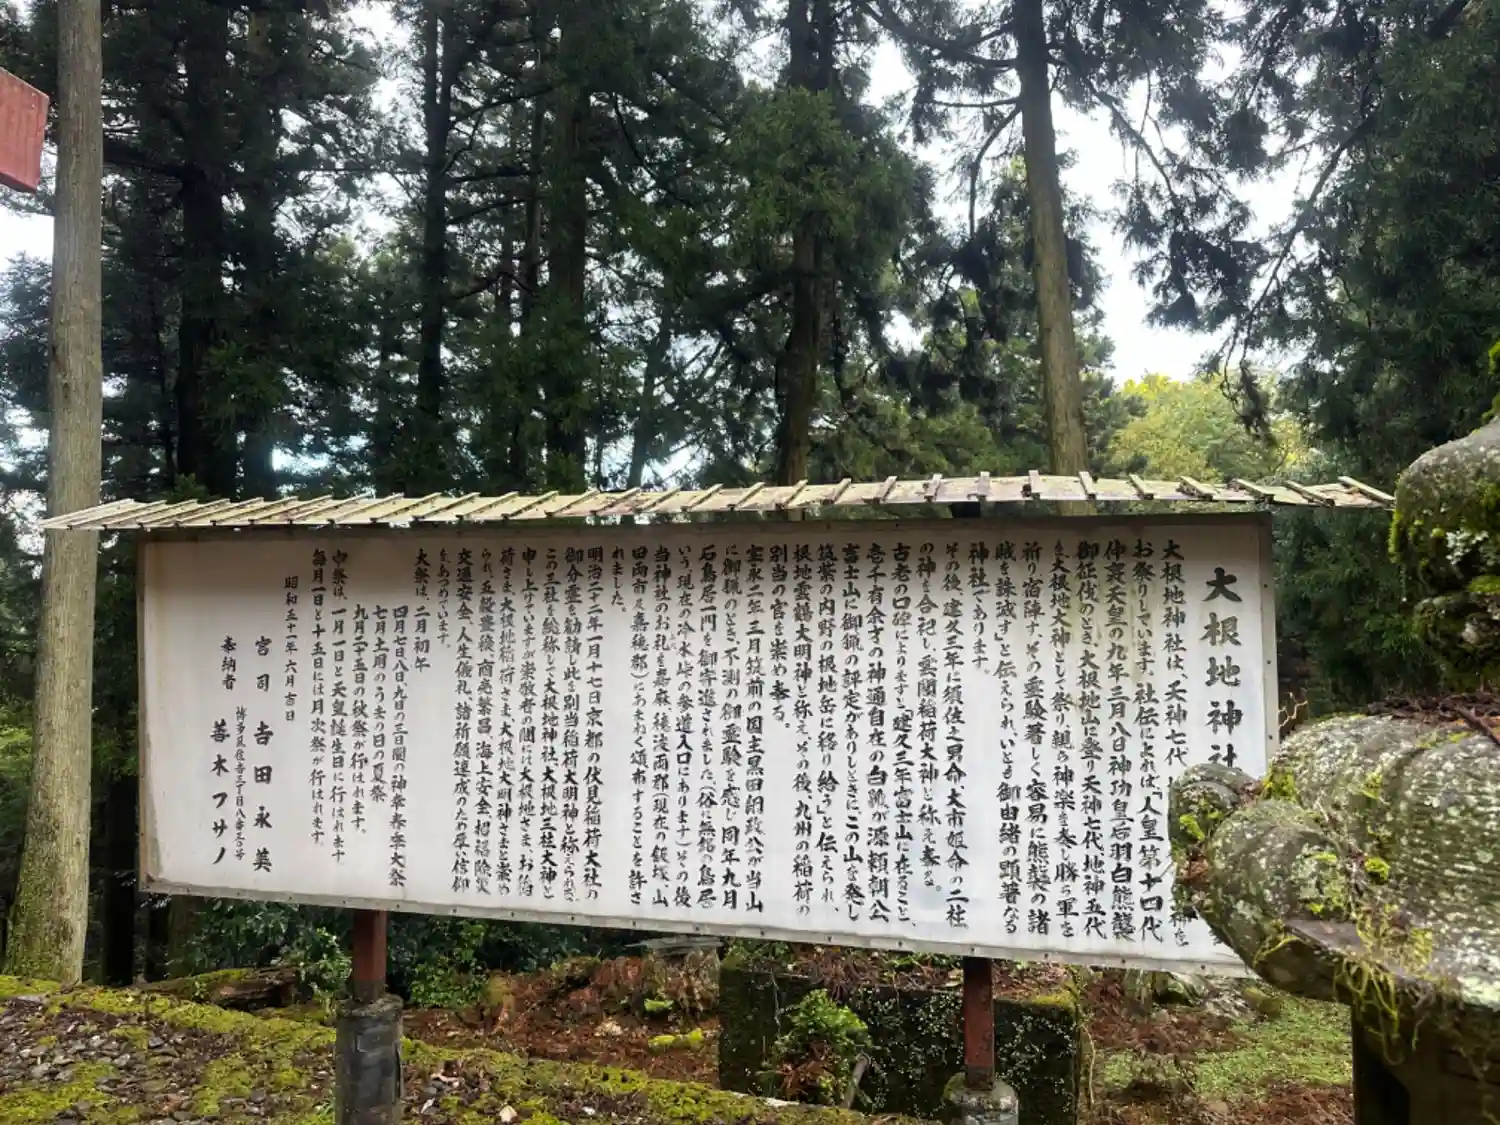 大根地神社
大根地神社は、天神七代
お祭りしています。社伝によれば、「人皇第十四代
仲哀天皇の九年三月八日神功皇后羽白熊襲
御征伐のとき、大根地山に登り天神七代地神五代
を大根地大神として祭り親ら神楽を奏し勝ち軍を
祈り宿陣す、その霊験著しく容易に熊襲の諸
賊を誅滅す」と伝えられ、いとも御由緒の顕著なる
神社であります。
その後、建久三年に須佐之男命、大市姫命の二社
の神を合祀し、霊閣稲荷大神と称え奉る。
古老の口碑によりますと、建久三年富士山に在ること、
壱千有余才の神通自在の白狐が源頼朝公
富士山に御猟の評定がありしときに、この山を発し
筑紫の内野の根地岳に移り給う」と伝えられ、
根地霊鶴大明神と称え、その後、九州の稲荷の
別当の宮を崇め奉る。
宝永二年三月筑前の国主黒田綱政公が当山
に御猟のとき、不測の御霊験を感じ同年九月
石鳥居一門を御寄進されました、(俗に無銘の鳥居
いう、現在の冷水峠の参道入口にあります)その後
当神社のお礼を嘉麻、穂波両郡(現在の飯塚、山
田両市及嘉穂郡)にあまねく頒布することを許さ
れました。
明治二十二年一月十七日京都の伏見稲荷大社の
御分霊を勧請し此を別当稲荷大明神と称えられ、
この三社を総称して大根地神社、大根地三社大神と
申し上げていますが崇敬者の間には大根地さま、お稲
荷さま、大根地稲荷さま、大根地大明神さまと崇め
られ、五穀豊穣、商売繁昌、海上安全、招福除災
交通安全、人生儀礼、諸祈願達成のため厚い信仰
をあつめています。
大祭は、二月初午
四月七日八日九日の三日間の神幸春季大祭
七月土用のうまの日の夏祭
九月二十五日の秋祭が行はれます。
中祭は、一月一日と天皇誕生日に行はれます
毎月一日と十五日には月次祭が行はれます。
昭和五十一年六月吉日
宮司 吉田永英
奉納者
善木フサノ